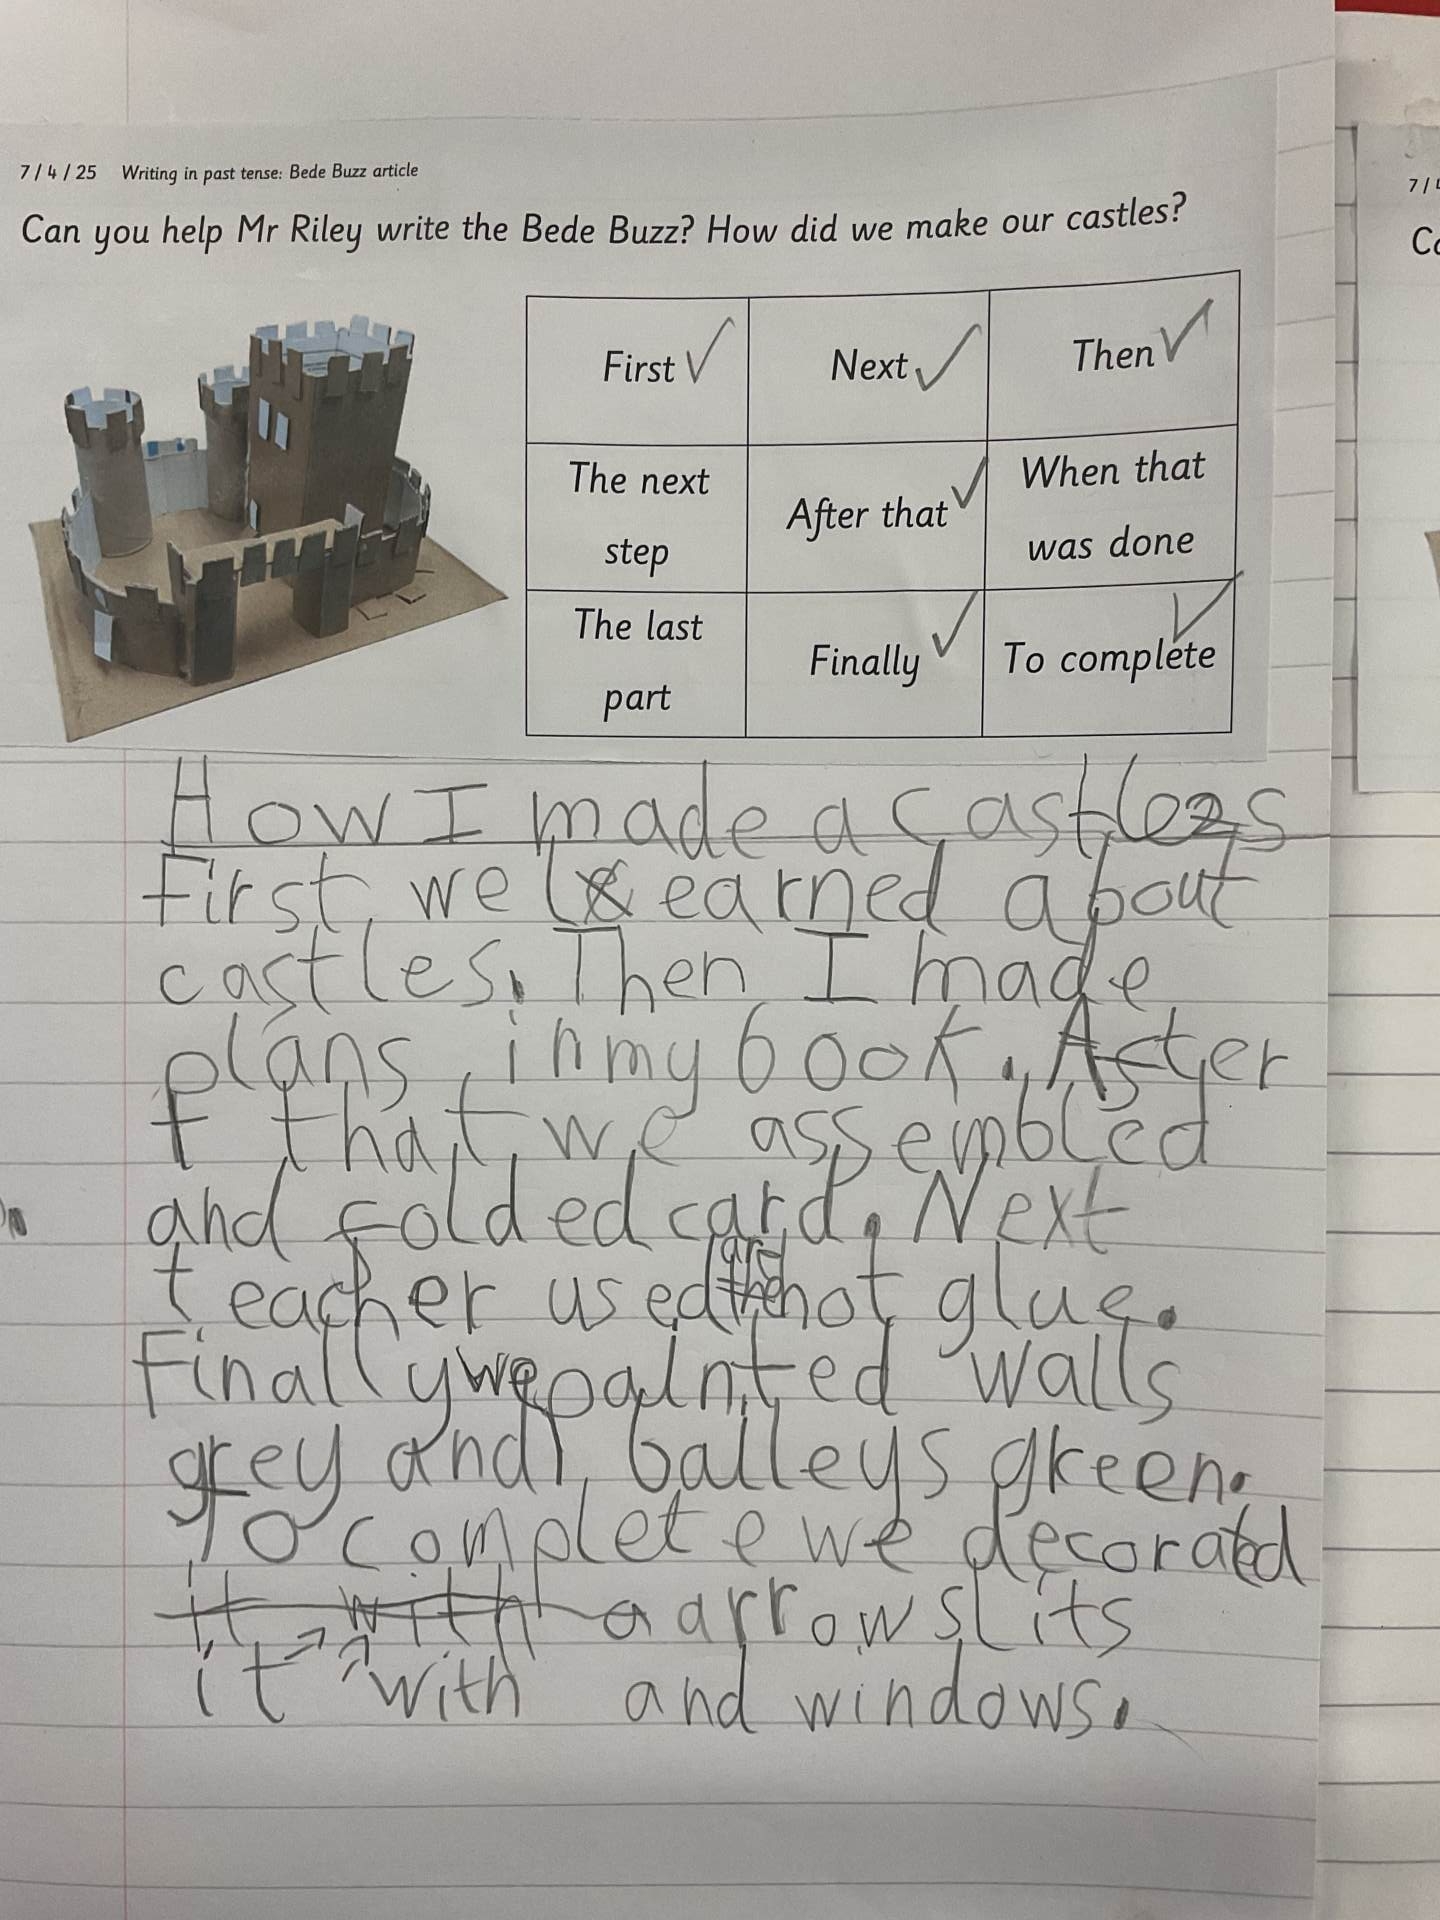 7 / 4 / 25 Writing in past tense: Bede Buzz article
7 / 4
Can you help Mr Riley write the Bede Buzz? How did we make our castles?
First Next Then
The next step
After that
When that was done
The last part
Finally
To complete
How I made a castles
First we learned about
castles. Then I made
plans in my book. After
t that we assembled
and folded card. Next
are
teacher used the hot glue.
Finally we painted walls
grey and balleys green.
To complete we decorated
it with a arrow slits
it with and windows.